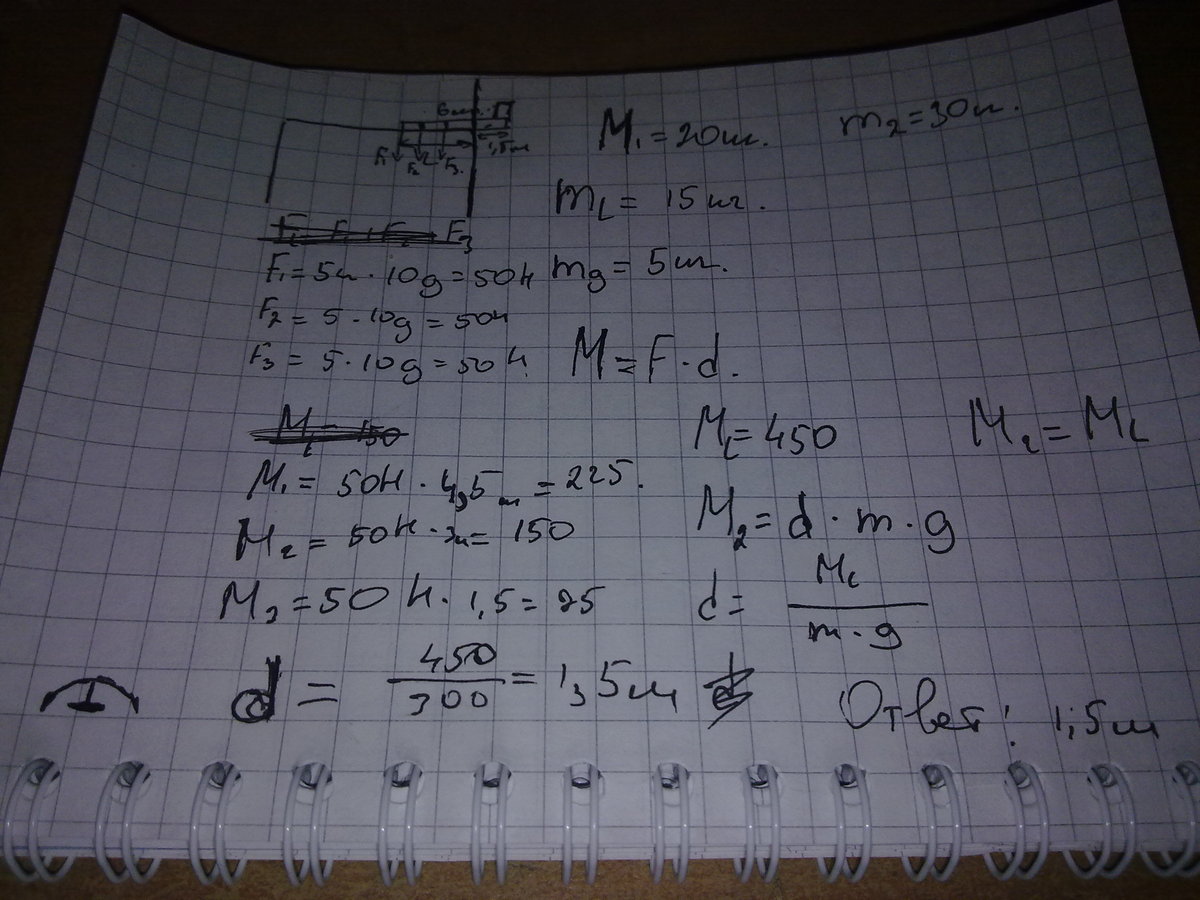 6м. 1,5м
F₁ F₂ F₃
M₁ = 20кг. m₂ = 30кг.
m_L = 15кг.
F₃
F₁ = 5кг · 10g = 50Н mg = 5кг.
F₂ = 5 · 10g = 50Н
F₃ = 5 · 10g = 50Н. M = F · d.
M_L = 150
M_L = 450 M₂ = M_L
M₁ = 50Н · 4,5м = 225.
M₂ = d · m · g
M₂ = 50Н · 3м = 150
M₃ = 50Н · 1,5 = 75
d = M_L / m · g
d = 450 / 300 = 1,5м
Ответ: 1,5м